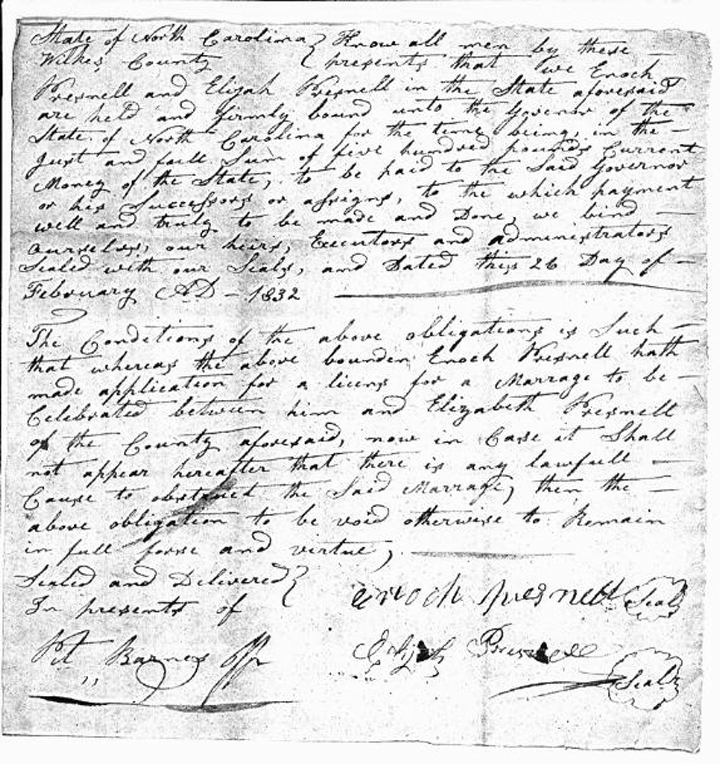 State of North Carolina } Know all men by these —
Wilkes County } presents that we Enoch
Presnell and Elijah Presnell in the State aforesaid
are held and firmly bound unto the Govenor of the
State of North Carolina for the time being, in the —
Just and full Sum of five hundred pounds Current
Money of the State, to be paid to the Said Governor
or his Successors or assigns, to the which payment
well and truly to be made and Done, we bind —
ourselves, our heirs, Executors and administrators
Sealed with our Seals, and Dated this 26 Day of —
February AD – 1832
The Conditions of the above obligations is Such —
that whereas the above bounden Enoch Presnell hath
made application for a licens for a Marrage to be —
Celebrated between him and Elizabeth Presnell
of the County aforesaid, now in Case it Shall
not appear hereafter that there is any lawfull —
Cause to obstruct the Said Marrage, then the —
above obligation to be void otherwise to Remain
in full forse and virtue,
Sealed and Delivered }
In presents of
enoch presnell Seal
Barnes
Elijah Presnell Seal